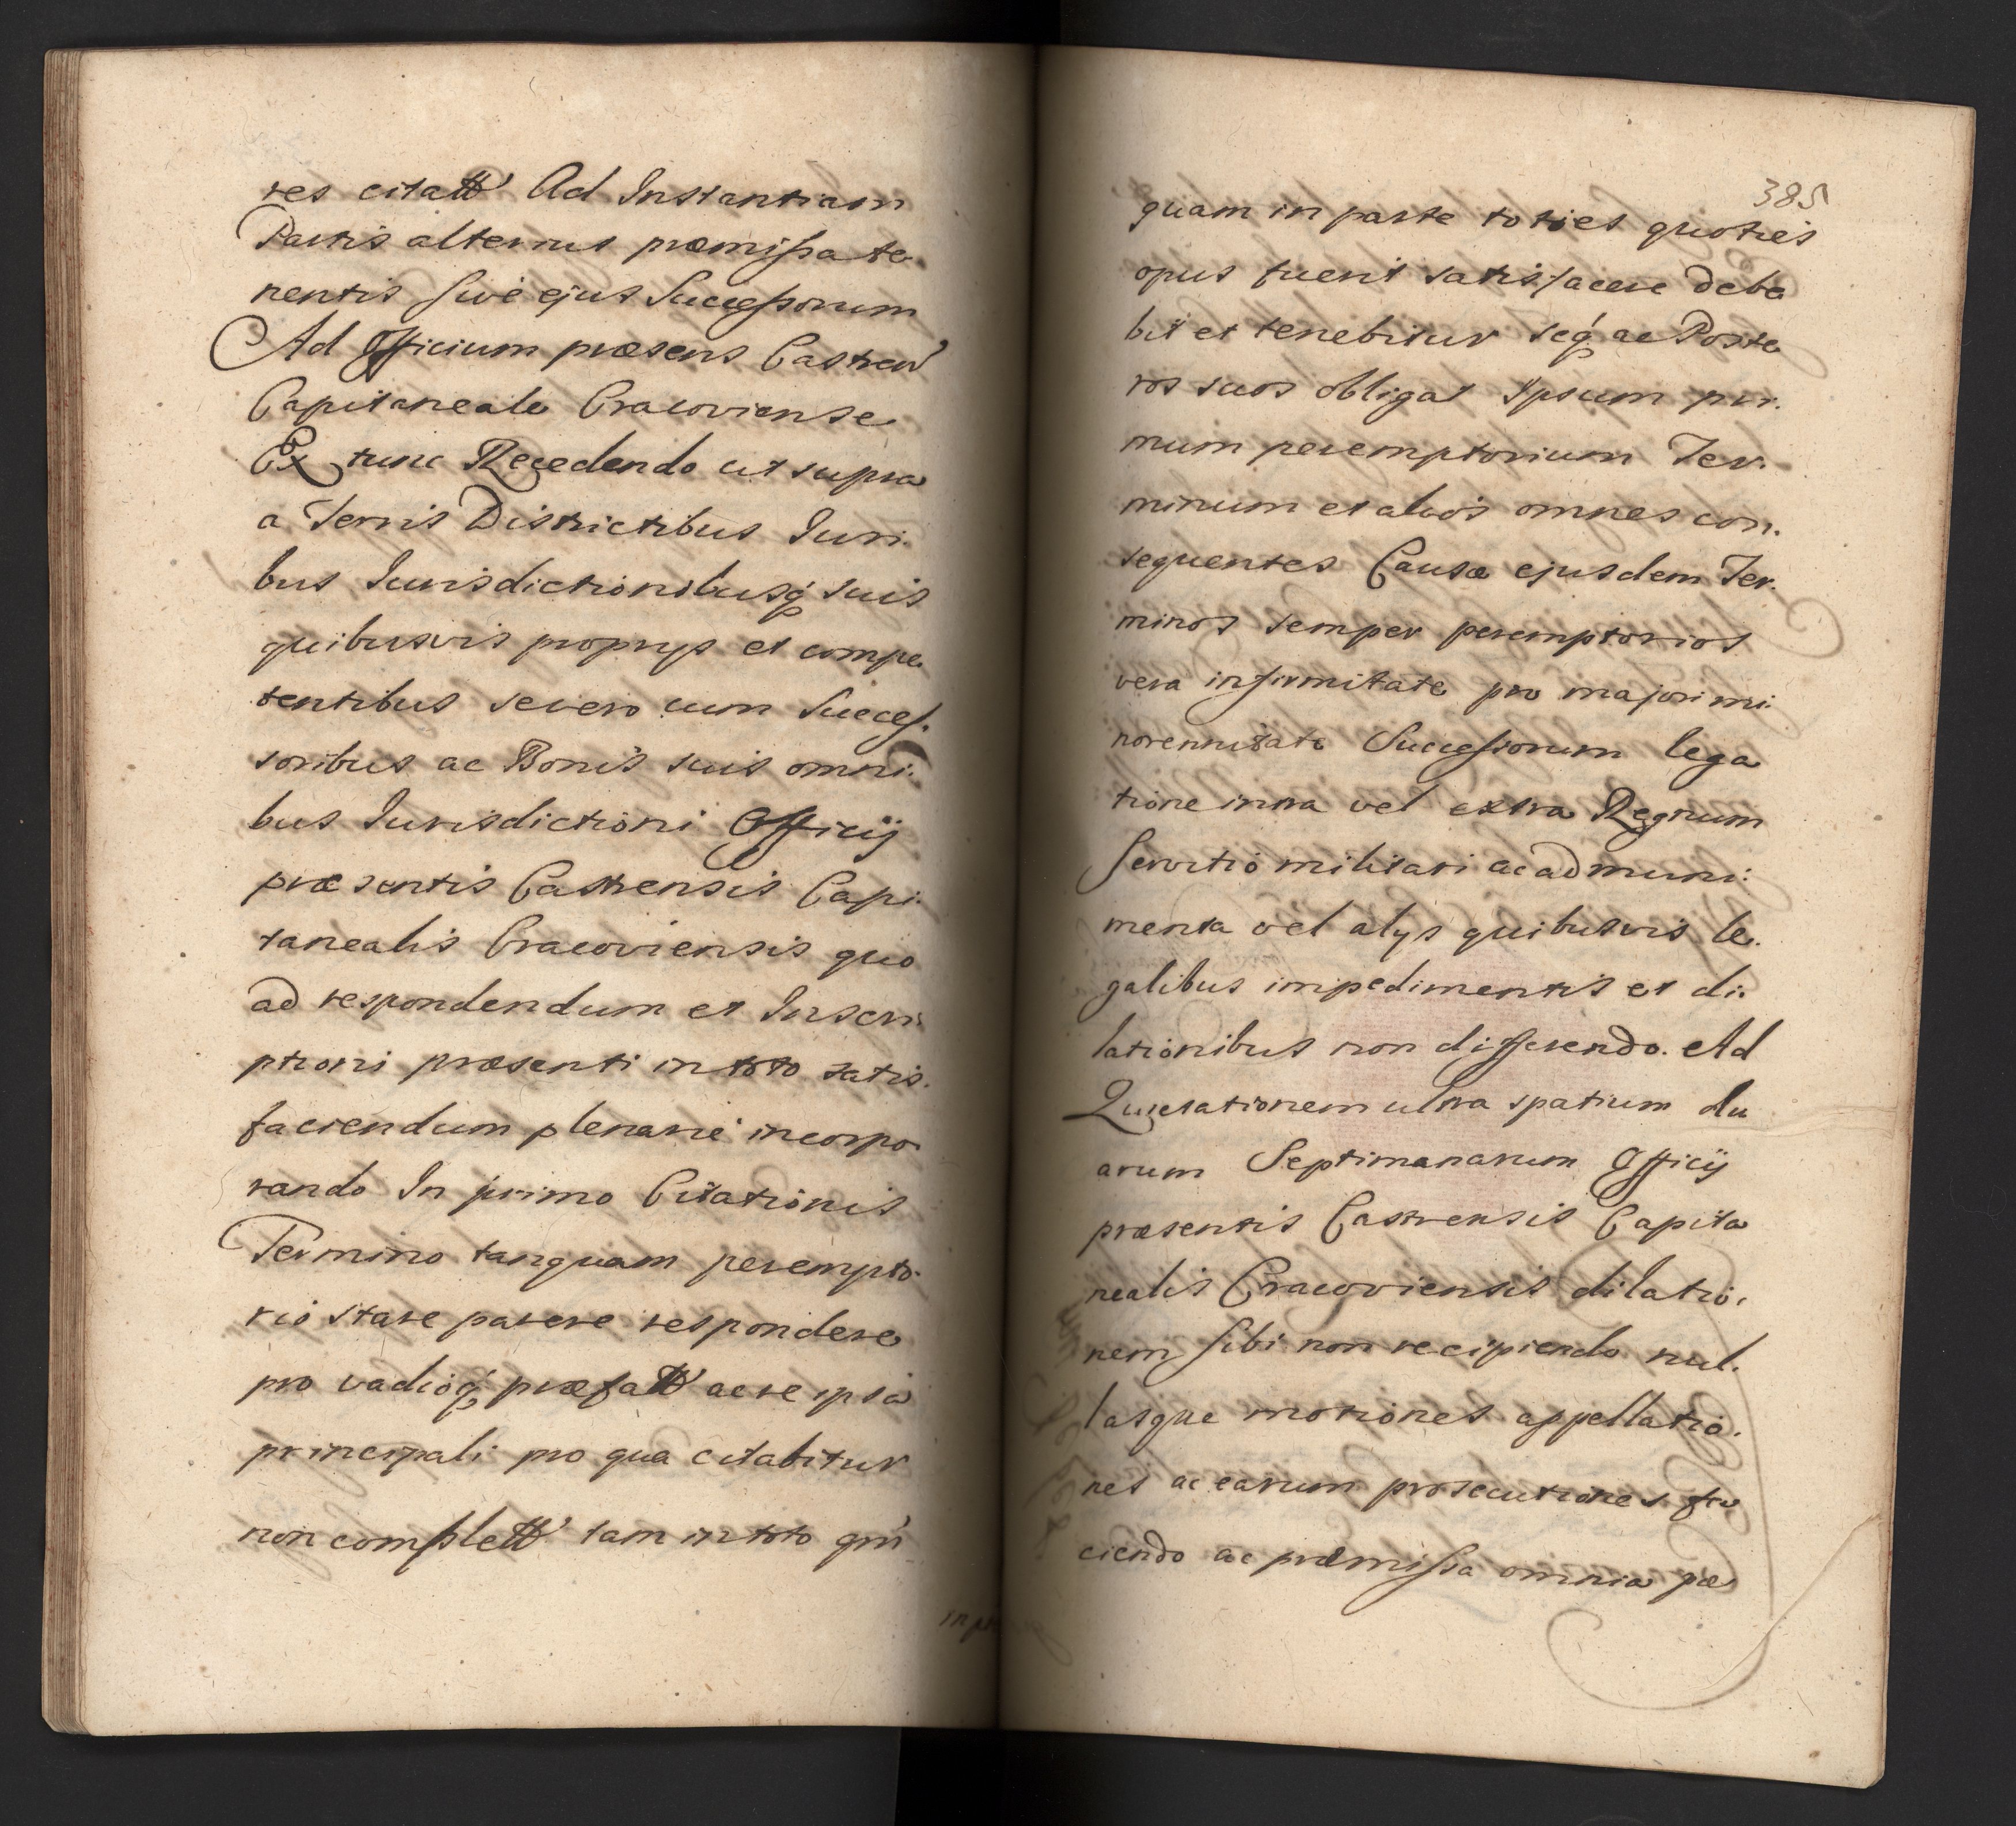 res citatt Ad Instantiam
Partis alterius præmissa te
nentis sive ejus Successorum
Ad Officium præsens Castren
Capitaneale Cracoviense
Ex tunc Recedendo ut supra
a Terris Districtibus Juri
bus Jurisdictionibusq suis
quibusvis proprijs et compe
tentibus se vero cum Succes.
soribus ac Bonis suis omni.
bus Jurisdictioni Officij
præsentis Castrensis Capi.
tanealis Cracoviensis quo
ad respondendum et Inscri
ptioni præsenti in toto satis.
faciendum plenarie incorpo
rando In primo Citationis
Termino tanquam perempto.
rio stare parere respondere
pro vadioq præfatt ac re ipsa
principali pro qua citabitur
non complett tam in toto qm
in par
385
quam in parte toties quoties
opus fuerit satisfacere debe
bit et tenebitur seq ac Poste
ros suos obligat Ipsum pri.
mum peremptorium Ter.
minum et alios omnes con.
sequentes Causæ ejusdem Ter.
minos semper peremptorios
vera infirmitate pro majori mi.
norennitate Successorum lega
tione intra vel extra Regnum
servitio militari ac ad muni:
menta vel alys quibusvis le.
galibus impedimentis et di.
lationibus non differendo. Ad
Quietationem ultra spatium du
arum Septimanarum Officij
præsentis Castrensis Capita
nealis Cracoviensis dilatio.
nem sibi non recipiendo nul.
lasque motiones appellatio.
nes ac earum prosecutiones fa
ciendo ac præmissa omnia pæ